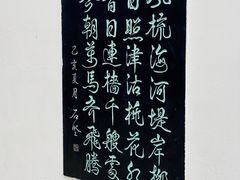 梳海河堤岸柳
日照津沽桃花
昔日連檣千艘雲
今朝萬馬齊飛騰
乙亥夏月